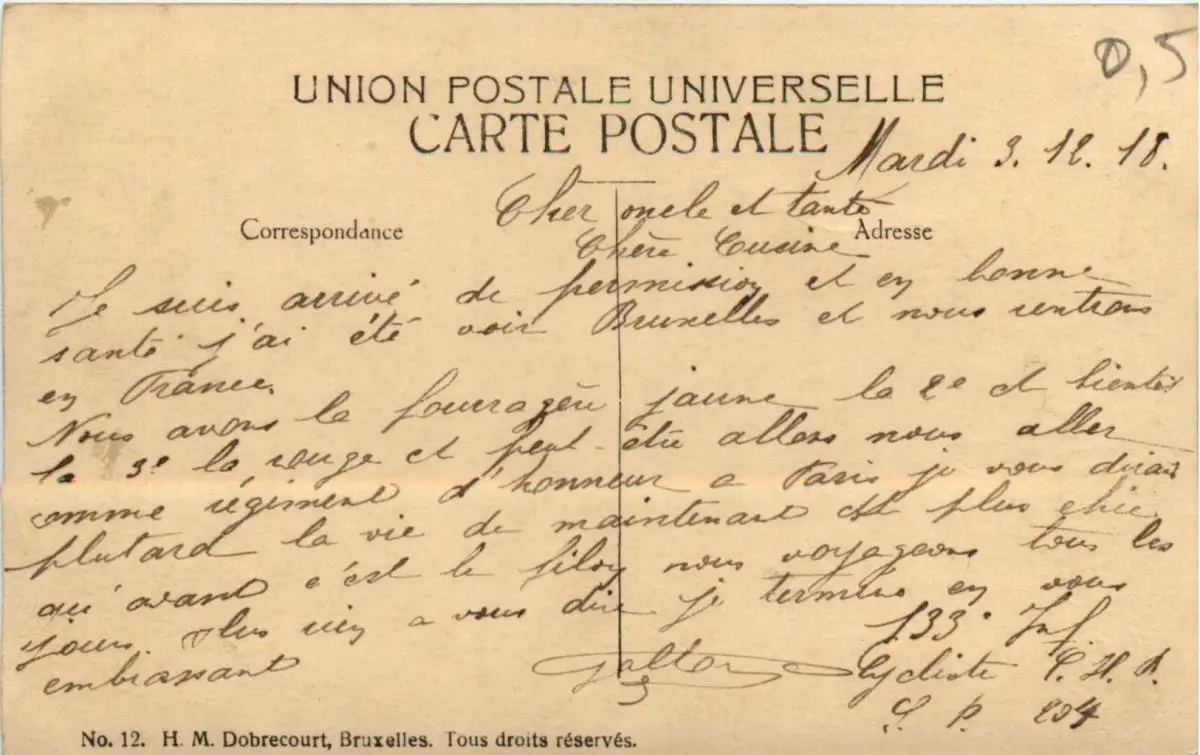 0,5
UNION POSTALE UNIVERSELLE
CARTE POSTALE
Mardi 3.12.18.
Cher oncle et tante
Correspondance
Adresse
Chère Cusine
Je suis arrivé de permission et en bonne
santé j'ai été voir Bruxelles et nous rentrons
en France.
Nous avons la fourragère jaune la 2e et bientôt
la 3e la rouge et peut-être allons nous aller
comme régiment d'honneur a Paris je vous dirais
plutard la vie de maintenant est plus chic
qu'avant c'est le filon nous voyageons tous les
jours. Plus rien a vous dire je termine en vous
embrassant
133e Inf.
Cycliste C.H.R.
S. P. 204
No. 12. H. M. Dobrecourt, Bruxelles. Tous droits réservés.